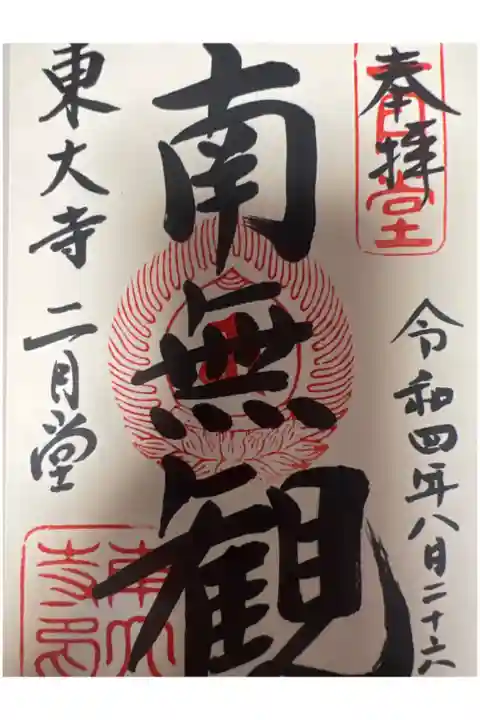 奉拝
二月堂
令和四年八月二十六
南無観
東大寺 二月堂